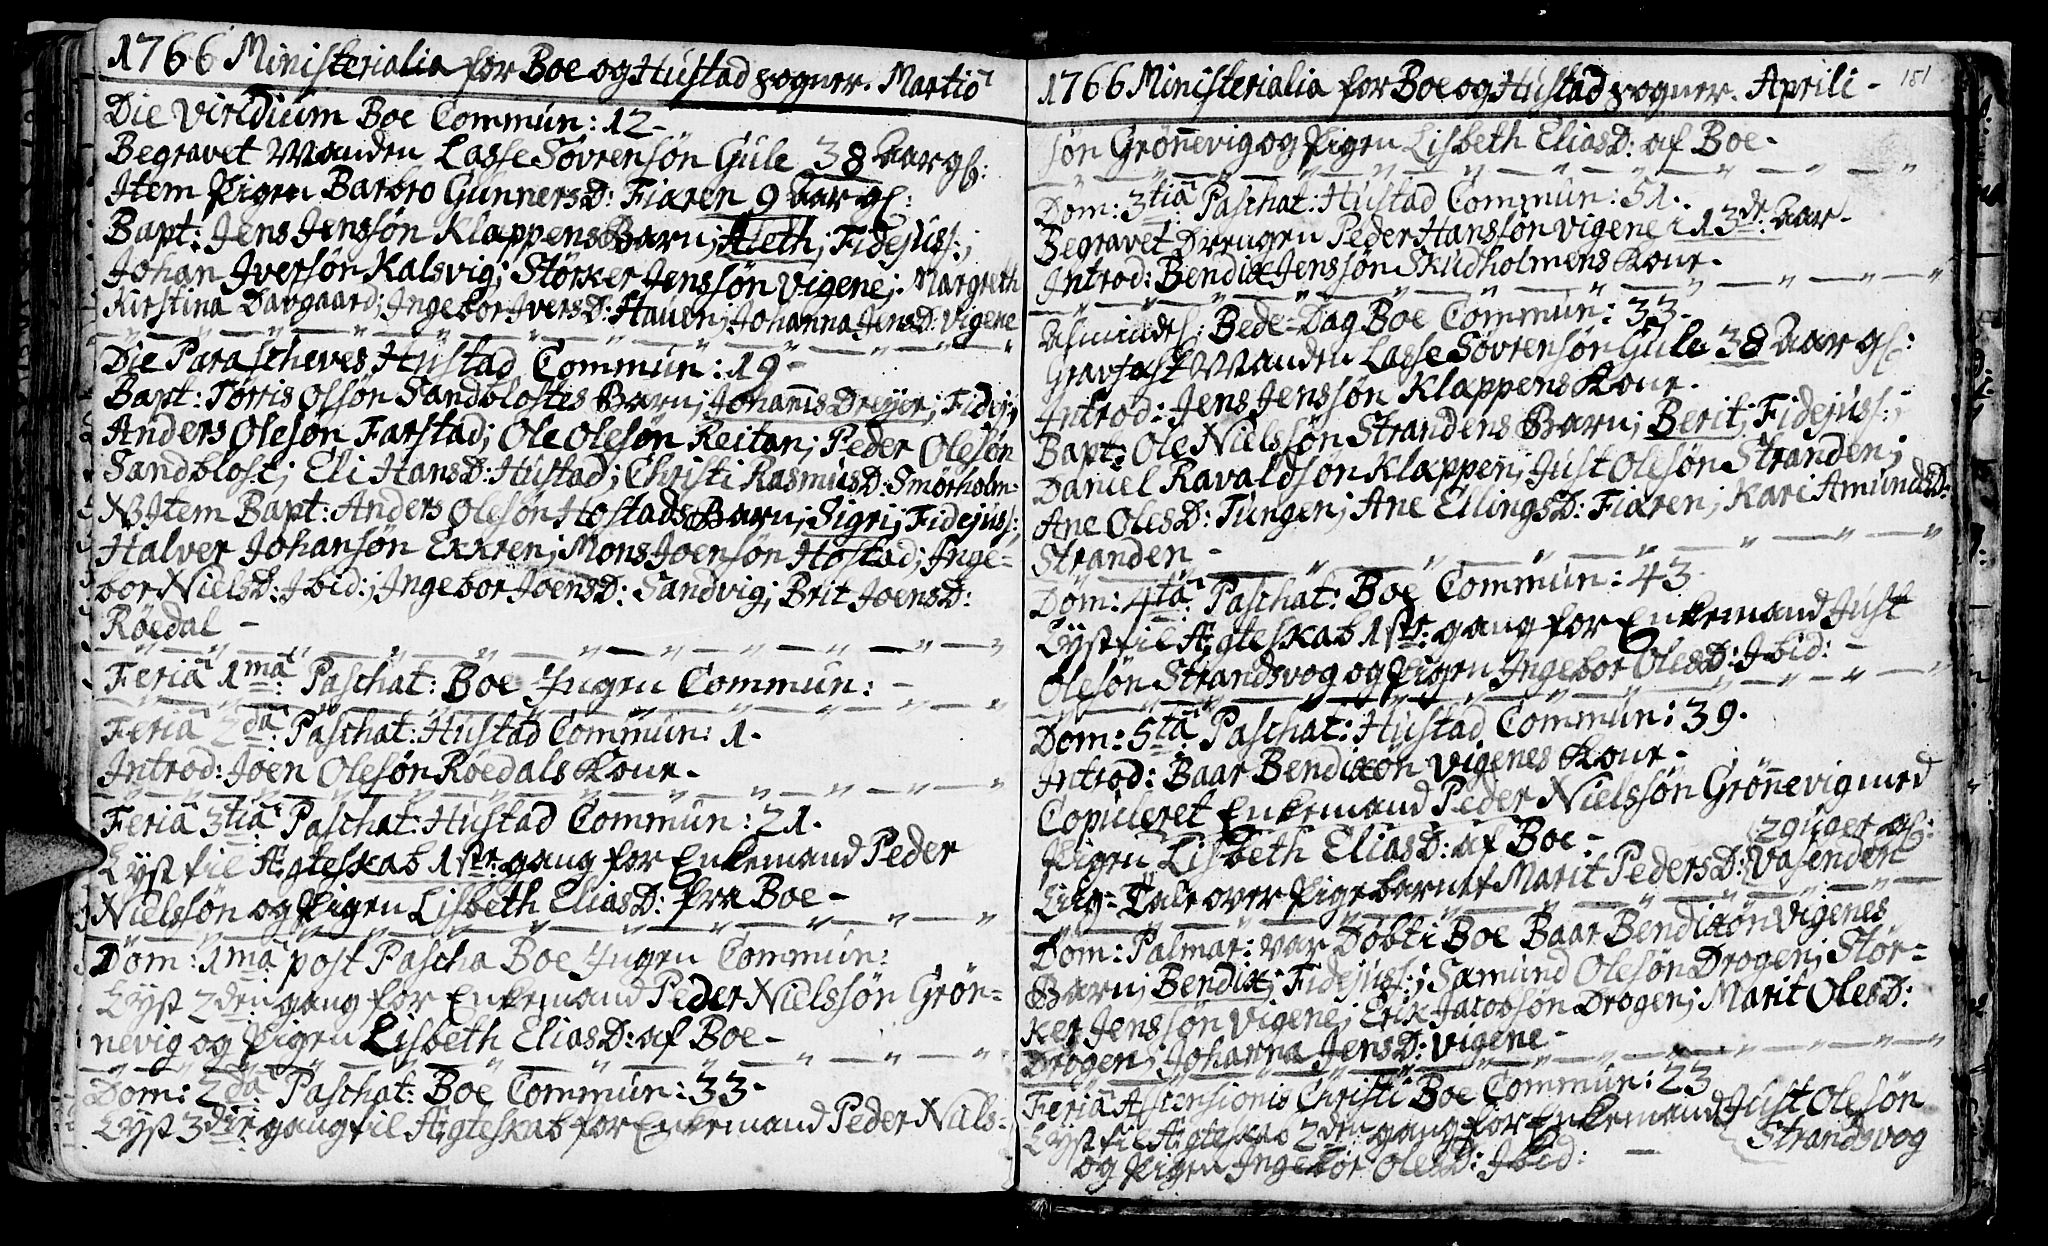 1766 Ministerialia for Boe og Hustad sogner. Martio
Die Viridium Boe Commun: 12-
Begravet Manden Lasse Sovrensøn Gule 38 Aar gl:
Item Pigen Barbro GunnersD: Fiaren 9 Aar gl:
Bapt: Jens Jensøn Klappens Barn; Aleth; Fidejuss:;
Johan Iversøn Kalsvig; Størker Jenssøn Vigene; Margreth
Kirstina Davgaard; Ingebor IversD: Hauen; Johanna JensD: Vigene
Die Parascheves Hustad Commun: 19-
Bapt: Torris Olsøn Sandblostes Barn; Johannis Dreyer; Fidej:;
Anders Olesøn Farstad; Ole Olesøn Reitan; Peder Olesøn
Sandblost; Eli HansD: Hustad; Christi RasmusD: Smørholm:
NB Item Bapt: Anders Olesøn Hostads Barn; Sigri; Fidejuss:;
Halver Johansøn Ekkren; Mons Joensøn Hostad; Inge-
bor NielsD: Ibid:; Ingebor JoensD: Sandvig; Brit JoensD:
Röedal -
Feria 1ma Paschat: Boe Ingen Commun: -
Feria 2da Paschat: Hustad Commun: 1-
Introd: Joen Olesøn Roedals Kone-
Feria 3tia Paschat: Hustad Commun: 21.
Lyst til Ægteskab 1ste gang for Enkemand Peder
Nielssøn og Pigen Lisbeth EliasD: fra Boe-
Dom: 1ma post Pascha Boe Ingen Commun:
Lyst 2den gang for Enkemand Peder Nielssøn Grön-
nevig og Pigen Lisbeth EliasD: af Boe-
Dom: 2da Paschat: Boe Commun: 33-
Lyst 3die gang til Ægteskab for Enkemand Peder Niels-
1766 Ministerialia for Boe og Hustad sogner. Aprili- 181
søn Grönnevig og Pigen Lisbeth EliasD: af Boe-
Dom: 3tia Paschat: Hustad Commun: 51.
Begravet Drengen Peder Hanssøn Vigene i 13de Aar-
Introd: Bendix Jenssøn Skudholmens Kone-
Almindel: Bede-Dag Boe Commun: 33-
Gravfast Manden Lasse Sovrensøn Gule 38 Aar gl:
Introd: Jens Jenssøn Klappens Kone-
Bapt: Ole Nielssøn Strandens Barn; Berit; Fidejuss:;
Daniel Ravaldsøn Klappen; Just Olesøn Stranden;
Ane OlesD: Tungen; Ane EllingsD: Fiaren; Kari AmundsD:
Stranden-
Dom: 4ta Paschat: Boe Commun: 43
Lyst til Ægteskab 1ste gang for Enkemand Just
Olesøn Strandsvog og Pigen Ingebor OlesD: Ibid:-
Dom: 5ta Paschat: Hustad Commun: 39.
Introd: Baar Bendixøn Vigenes Kone-
Copuleret Enkemand Peder Nielssøn Grönnevig med
Pigen Lisbeth EliasD: af Boe-
Liig-Tale over Pigebarnet Marit PedersD: Vasenden 2 uger gl:
Dom: Palmar: var Döbt i Boe Baar Bendixøn Vigenes
Barn; Bendix; Fidejuss:; Samund Olesøn Drogen; Stör-
ker Jenssøn Vigene; Erik Jacobsøn Drogen; Marit OlesD:
Drogen; Johanna JensD: Vigene-
Feria Ascensionis Christi Boe Commun: 23
Lyst til Ægteskab 2den gang for Enkemand Just Olesøn Strandsvog
og Pigen Ingebor OlesD: Ibid: -